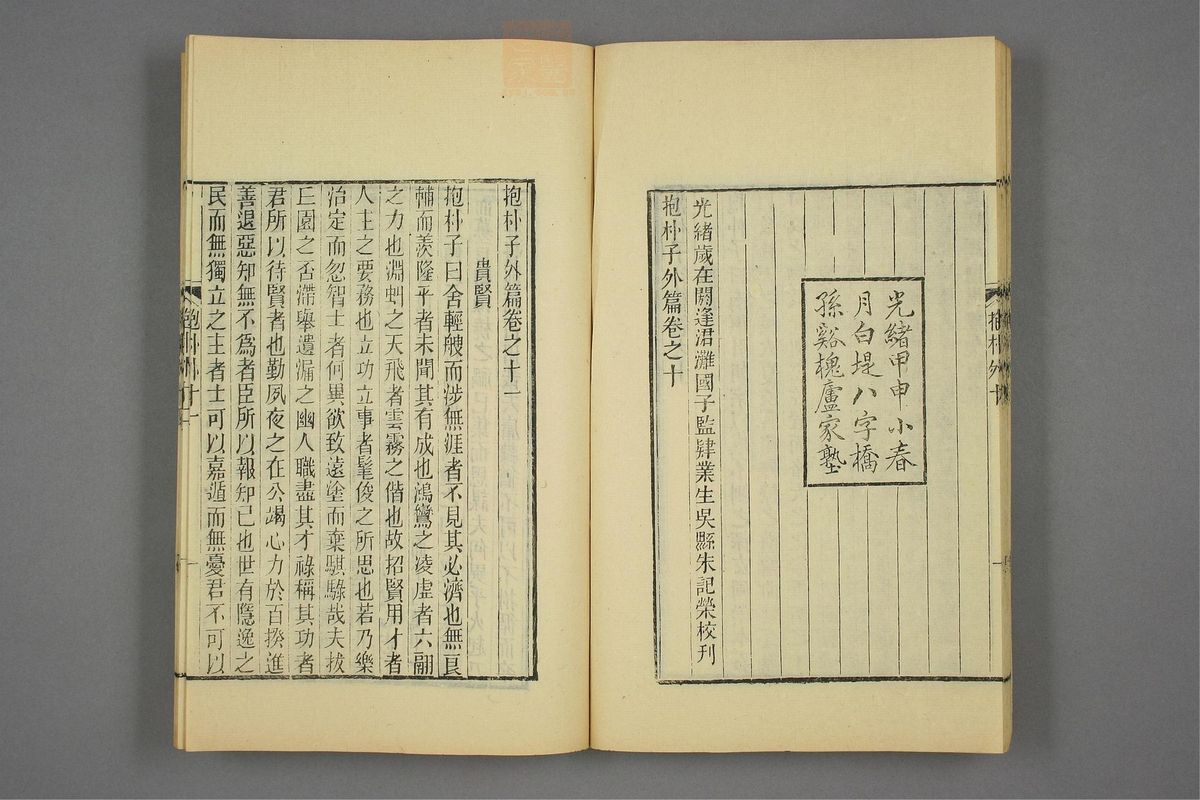 光緒甲申小春
月白堤八字橋
孫谿槐廬家塾
光緒歲在閼逢涒灘國子監肄業生吳縣朱記榮校刊
抱朴子外篇卷之十
抱朴外十
一
抱朴子外篇卷之十一
貴賢
抱朴子曰舍輕艘而涉無涯者不見其必濟也無良
輔而羨隆平者未聞其有成也鴻鸞之凌虛者六翮
之力也淵虯之天飛者雲霧之偕也故招賢用才者
人主之要務也立功立事者髦俊之所思也若乃樂
治定而忽智士者何異欲致遠塗而棄騏騄哉夫拔
丘園之否滯舉遺漏之幽人職盡其才祿稱其功者
君所以待賢者也勤夙夜之在公竭心力於百揆進
善退惡知無不爲者臣所以報知己也世有隱逸之
民而無獨立之主者士可以嘉遁而無憂君不可以
抱朴十一
一